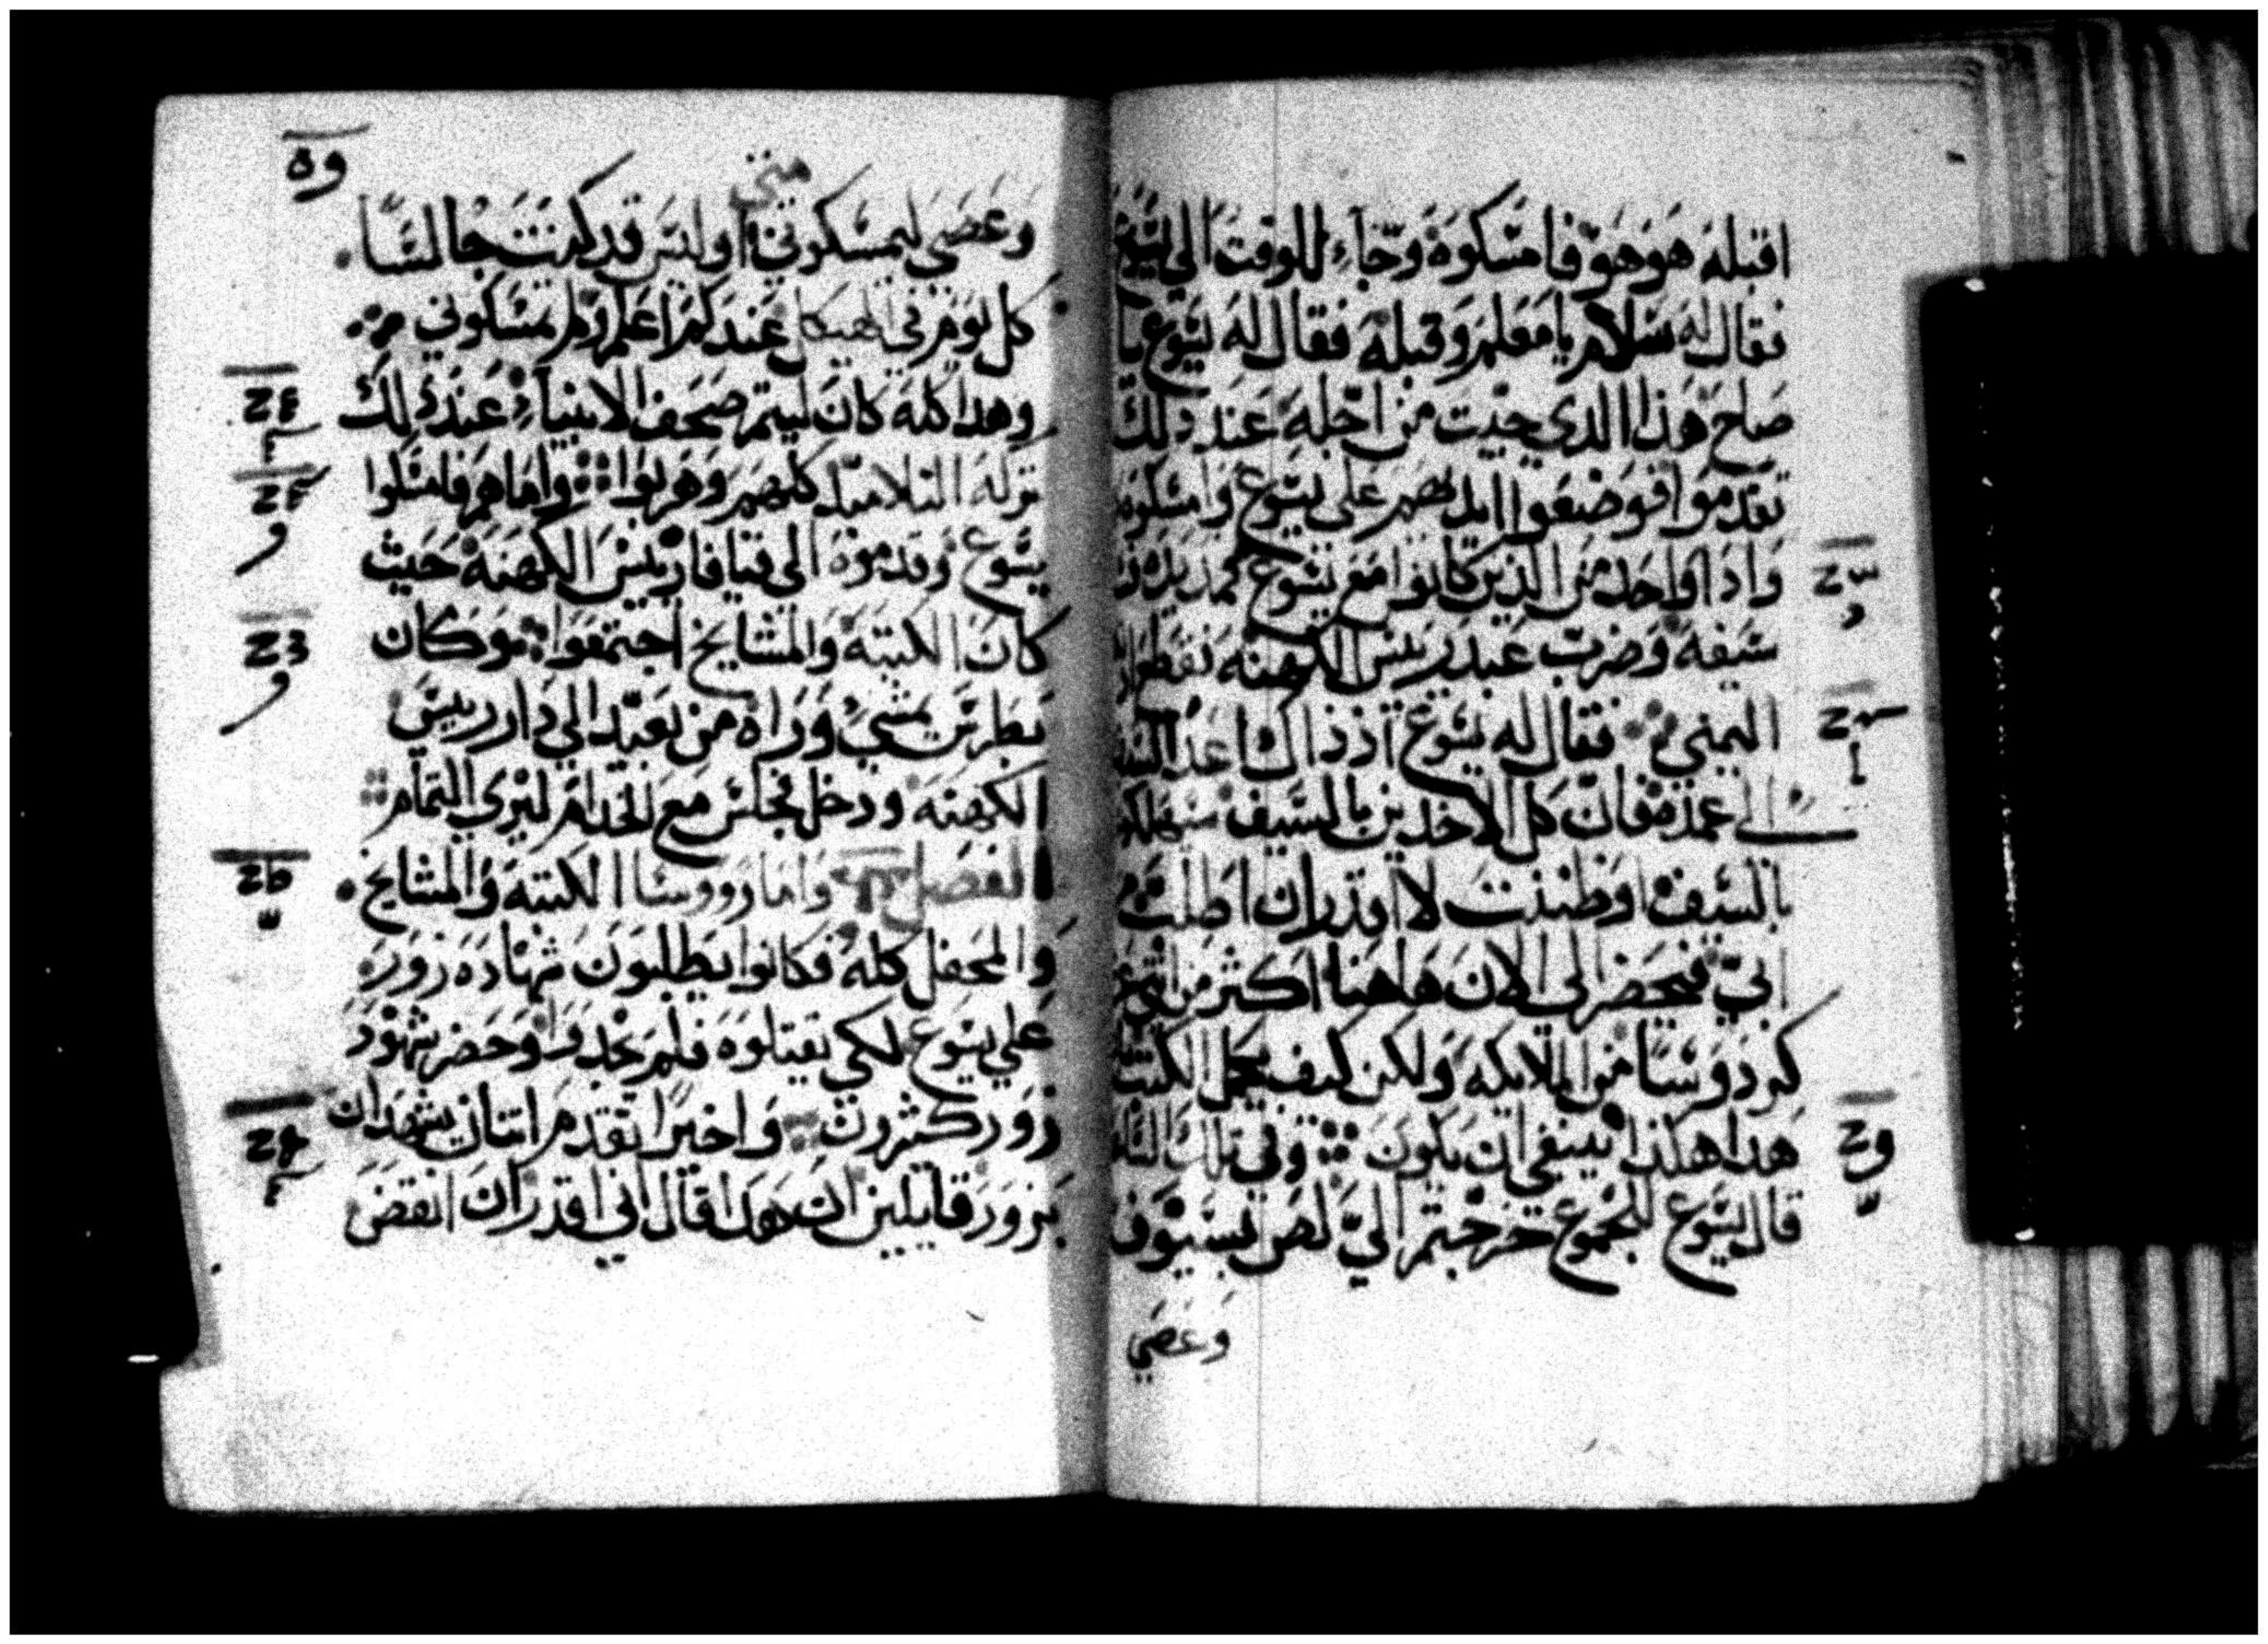 اقبله هو هو فامسكوه وجاء للوقت الى يسوع
فقال له سلام يا معلم وقبله فقال له يسوع يا
صاح هذا الذي جيت من اجله عند ذلك
تقدموا فوضعوا ايديهم على يسوع وامسكوه
واذا واحد من الذين كانوا مع يسوع مد يده
سيفه وضرب عبد رييس الكهنه فقطع
اليمني فقال له يسوع اذ ذاك اعد السيف
الى غمده فان كل الاخذين بالسيف
بالسيف او ظننت لا اقدر ان اطلب
ابي فيحضر لى الان هاهنا اكثر من اثني عشر
كردوسًا من الملايكه ولكن كيف يحمل الكتب
هذا هكذا ينبغي ان يكون وفي تلك
قال يسوع للجموع خرجتم اليّ لص بسيوف
وعصي
وه
متي
وعصي لتمسكوني اوليس قد كنت جالسًا
كل يوم في الهيكل عندكم اعلم ولم تمسكوني
وهذا كله كان ليتم صحف الانبياء عند ذلك
تركه التلاميذ كلهم وهربوا واما هم فامسكوا
يسوع وقدموه الى قيافا رييس الكهنه حيث
كان الكتبه والمشايخ اجتمعوا وكان
بطرس يمشي وراه من بعيد الي دار رييس
الكهنه ودخل فجلس مع الخدام ليري التمام
الفصل واما رووسا الكتبه والمشايخ
والمحفل كله فكانوا يطلبون شهاده زور
على يسوع لكي يقتلوه فلم يجدوا وحضر شهود
زور كثيرون واخيرًا تقدم اتنان يشهدان
بزور قايلين ان هذا قال اني اقدر ان انقض